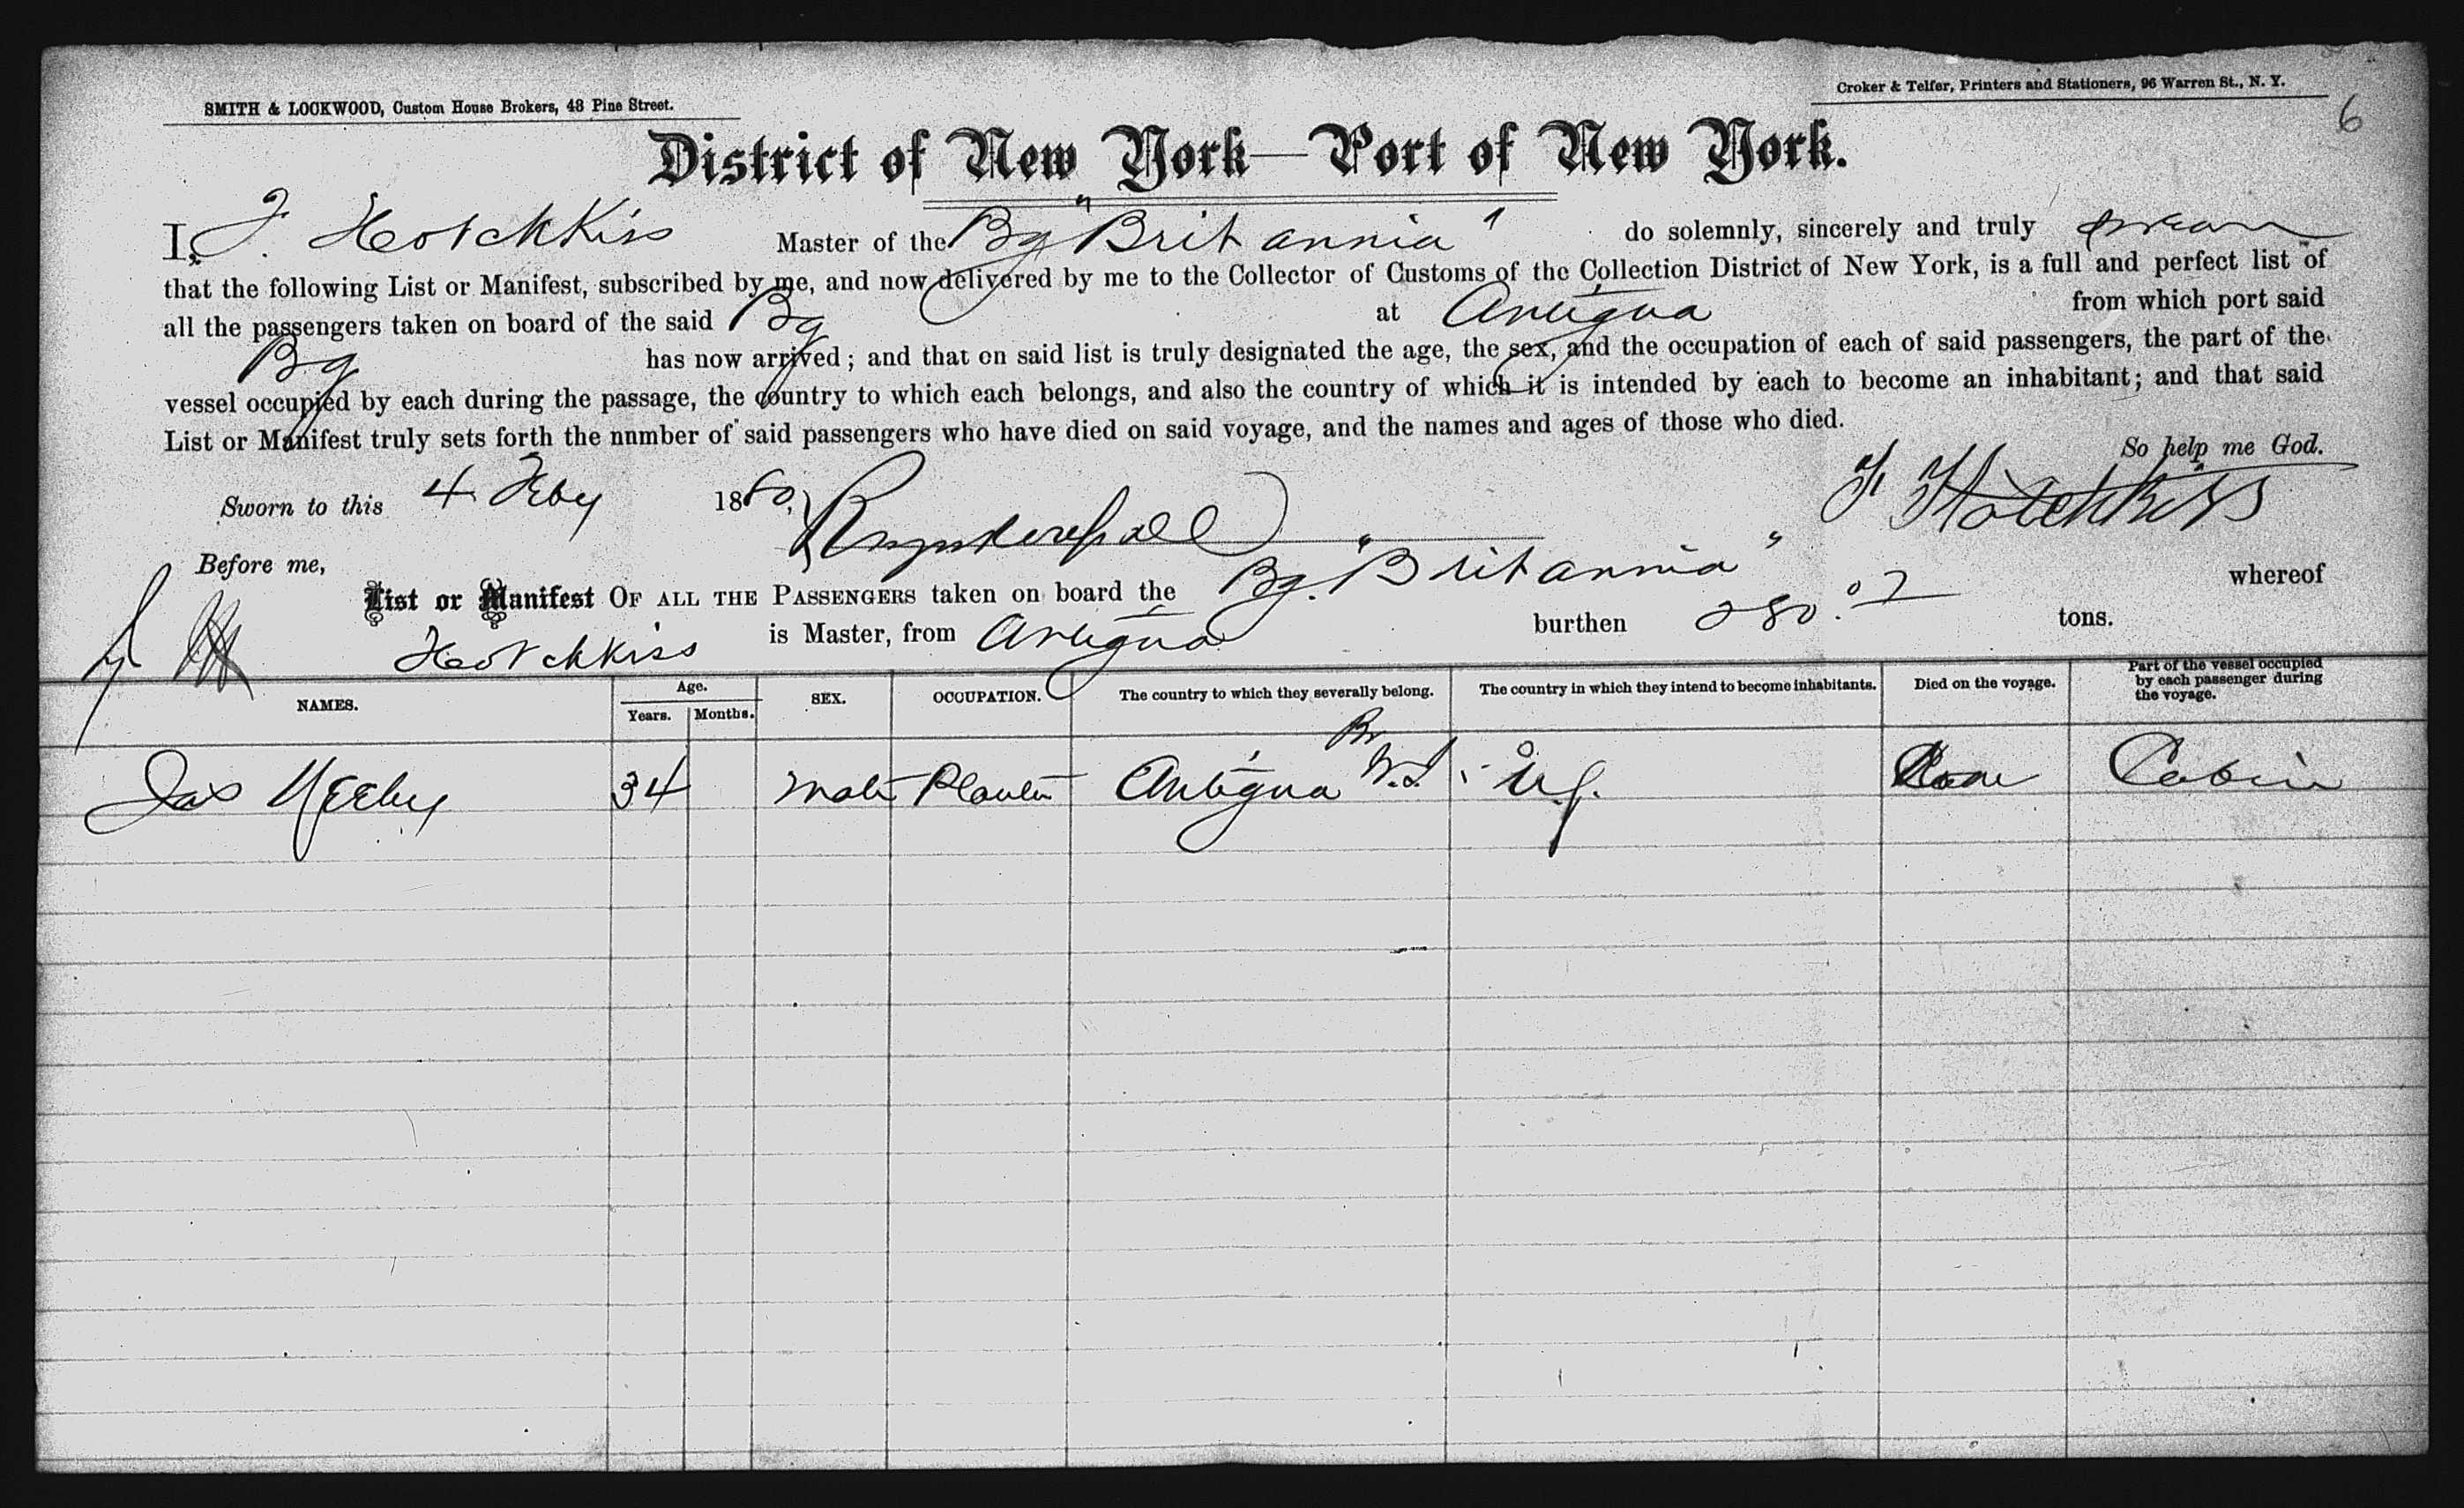 SMITH & LOCKWOOD, Custom House Brokers, 48 Pine Street.
Croker & Telfer, Printers and Stationers, 96 Warren St., N. Y.
6
District of New York—Port of New York.
I, F. Hotchkiss Master of the Bg "Britannia" do solemnly, sincerely and truly swear
that the following List or Manifest, subscribed by me, and now delivered by me to the Collector of Customs of the Collection District of New York, is a full and perfect list of
all the passengers taken on board of the said Bg at Antigua from which port said
Bg has now arrived; and that on said list is truly designated the age, the sex, and the occupation of each of said passengers, the part of the
vessel occupied by each during the passage, the country to which each belongs, and also the country of which it is intended by each to become an inhabitant; and that said
List or Manifest truly sets forth the nnmber of said passengers who have died on said voyage, and the names and ages of those who died.
So help me God.
Sworn to this 4 Feby 1880, F Hotchkiss
Before me,
List or Manifest OF ALL THE PASSENGERS taken on board the Bg. "Britannia" whereof
Hotchkiss is Master, from Antigua burthen 280.07 tons.
NAMES. Age. Years. Months. SEX. OCCUPATION. The country to which they severally belong. The country in which they intend to become inhabitants. Died on the voyage. Part of the vessel occupied by each passenger during the voyage.
Jas 34 Male Planter Antigua Br W.I. Cabin